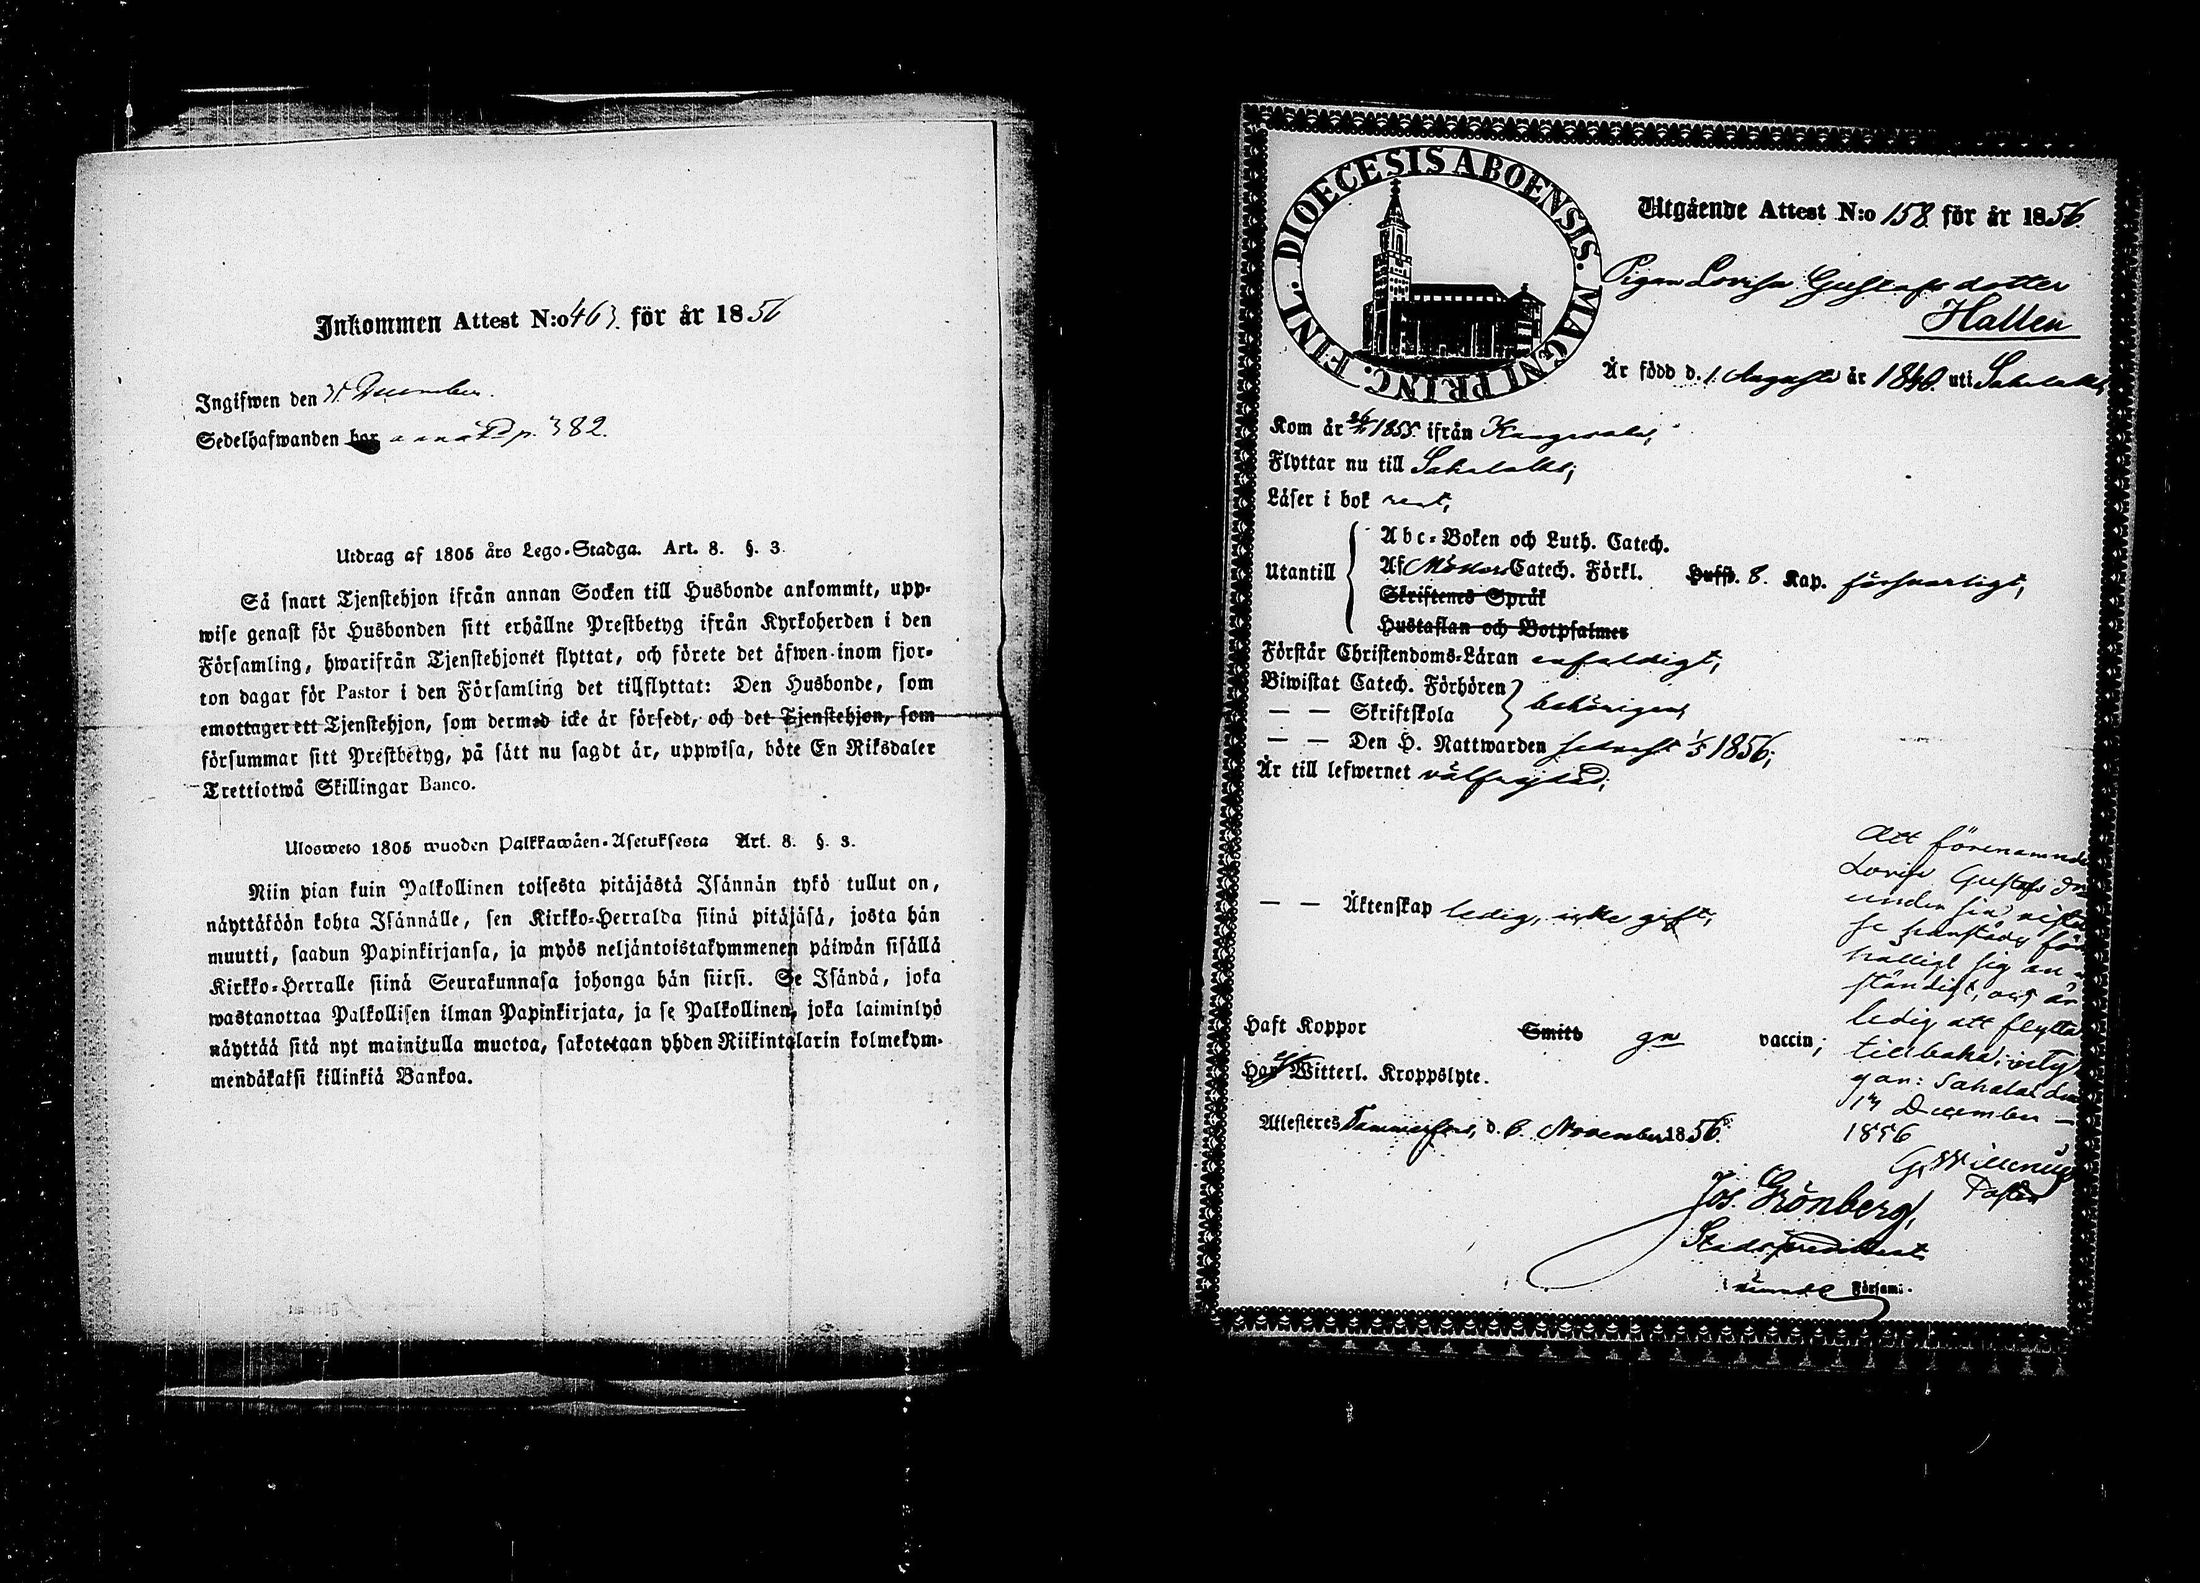 Inkommen Attest N:o 463. för år 1856
Ingifwen den 31 December.
Sedelhafwanden har p. 382.
Utdrag af 1805 års Lego-Stadga. Art. 8. §. 3.
Så snart Tjenstehjon ifrån annan Socken till Husbonde ankommit, upp-
wise genast för Husbonden sitt erhållne Prestbetyg ifrån Kyrkoherden i den
Församling, hwarifrån Tjenstehjonet flyttat, och förete det äfwen inom fjor-
ton dagar för Pastor i den Församling det tillflyttat: Den Husbonde, som
emottager ett Tjenstehjon, som dermed icke är försedt, och det Tjenstehjon, som
försummar sitt Prestbetyg, på sätt nu sagdt är, uppwisa, böte En Riksdaler
Trettiotwå Skillingar Banco.
Ulosweto 1805 wuoden Palkkawäen-Asetuksesta Art. 8. §. 3.
Niin pian kuin Palkollinen toisesta pitäjästä Isännän tykö tullut on,
näyttäköön kohta Isännälle, sen Kirkko-Herralda siinä pitäjäsä, josta hän
muutti, saadun Papinkirjansa, ja myös neljäntoistakymmenen päiwän sisällä
Kirkko-Herralle siinä Seurakunnasa johonga hän siirsi. Se Isändä, joka
wastanottaa Palkollisen ilman Papinkirjata, ja se Palkollinen, joka laiminlyö
näyttää sitä nyt mainitulla muotoa, sakotetaan yhden Riikintalarin kolmekym-
mendäkaksi killinkiä Bankoa.
DIOECESIS ABOENSIS. MAGNI PRINC. FINL.
Utgående Attest N:o 158 för år 1856.
Pigan Lovisa Gustafsdotter
Hallen
Är född d. 1 Augusti år 1840. uti Sahalaks,
Kom år 1855 ifrån Kangasala,
Flyttar nu till Sahalaks;
Läser i bok rent,
Utantill
Abc-Boken och Luth. Catech.
Af Möllers Catech. Förkl. Hufst. 8. Kap. försvarligt,
Skriftenes Språk
Hustaflan och Botpsalmer
Förstår Christendoms-Läran enfaldigt,
Biwistat Catech. Förhören
— — Skriftskola behörigen,
— — Den H. Nattwarden senast 1/5 1856;
Är till lefwernet välfrejdad;
— — Äktenskap ledig, icke gift,
Haft Koppor Smitt gn vaccin;
Har Witterl. Kroppslyte.
Attesteres Tammerfors, d. 6. November 1856.
Jos. Grönberg,
Stadspredikant
i Församl.
Att förenämnde
Lovisa Gustafs do
under sin vista
se härstädes för
hållit sig an
ständigt, och är
ledig att flytta
tillbaka, betyg
gar: Sahalaks den
17 December —
1856
G. Willenius
Pastor